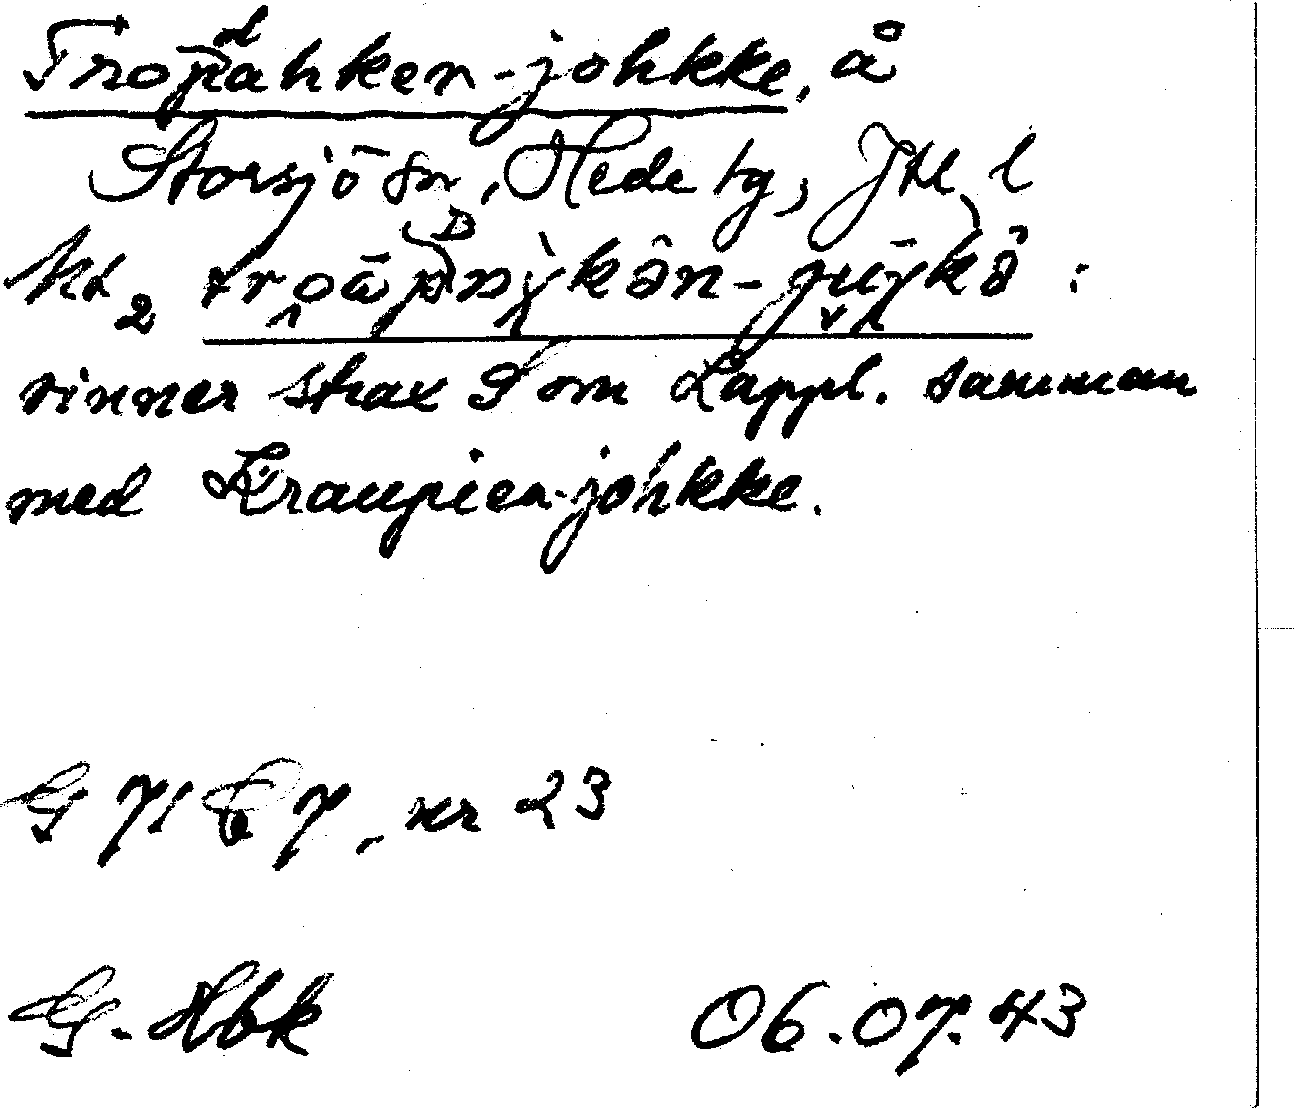 Tropahken-johkke, å
Storsjö sn, Hede tg, Jtl l
rinner strax S om Lappl. samman
med Kraupien-johkke.
G 71 C 7, nr 23
G. Hbk 06.07.43